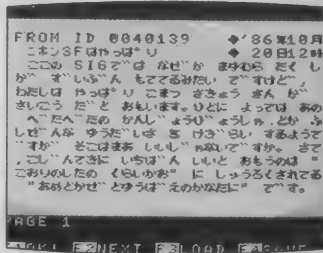 FROM ID 0040139 ◆'86年10月
ニホンSFはやっぱ°り ◆ 20日12時
ここの SIGで"は なせ"か まゆむら たく し
が" ず"いぶ"ん もててるみたい で"すけど",
わたしは やっぱ°り こまつ さきょう さん が"
さいこう だ"と おもいます。ひとに よっては あの
へ"たへ"たの かんじ"ょうひ"ょうしゃ、とか ふ
しせ"んな ゆうた"いさ を けき"らい するようて
"すか" そこはまあ いいし"ゃないて"すか。 さて
,こし"んてきに いちは"ん いいと おもうのは "
こおりのしたの くらいかお" に しゅうろくされてる
"あめとかせ"とゆうは"えのかなたに" て"す。
PAGE 1
F2NEXT F3LOAD